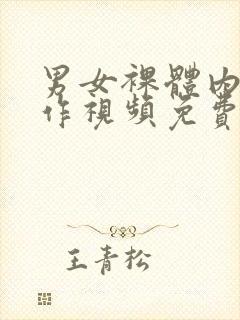 男女裸體內
作視頻免費
王青松